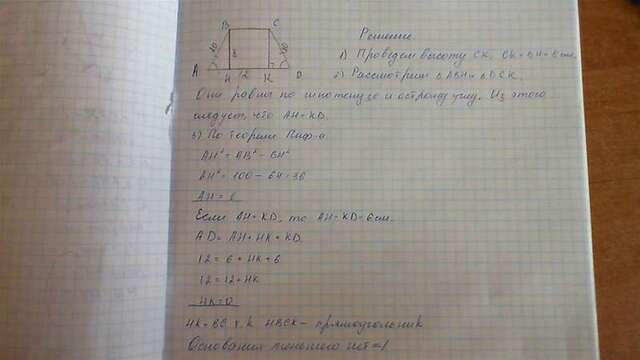 B C
10 8 10
A H 12 K D
Решение.
1) Проведем высоту CK. CK = BH = 8 см.
2) Рассмотрим △ABH = △DCK.
Они равны по гипотенузе и острому углу. Из этого
следует, что AH = KD.
3) По теореме Пиф-а
AH² = AB² - BH²
AH² = 100 - 64 = 36
AH = 6
Если AH = KD, то AH = KD = 6 см.
AD = AH + HK + KD
12 = 6 + HK + 6
12 = 12 + HK
HK = 0
HK = BC т.к HBCK - прямоугольник
Основания меньшего нет =